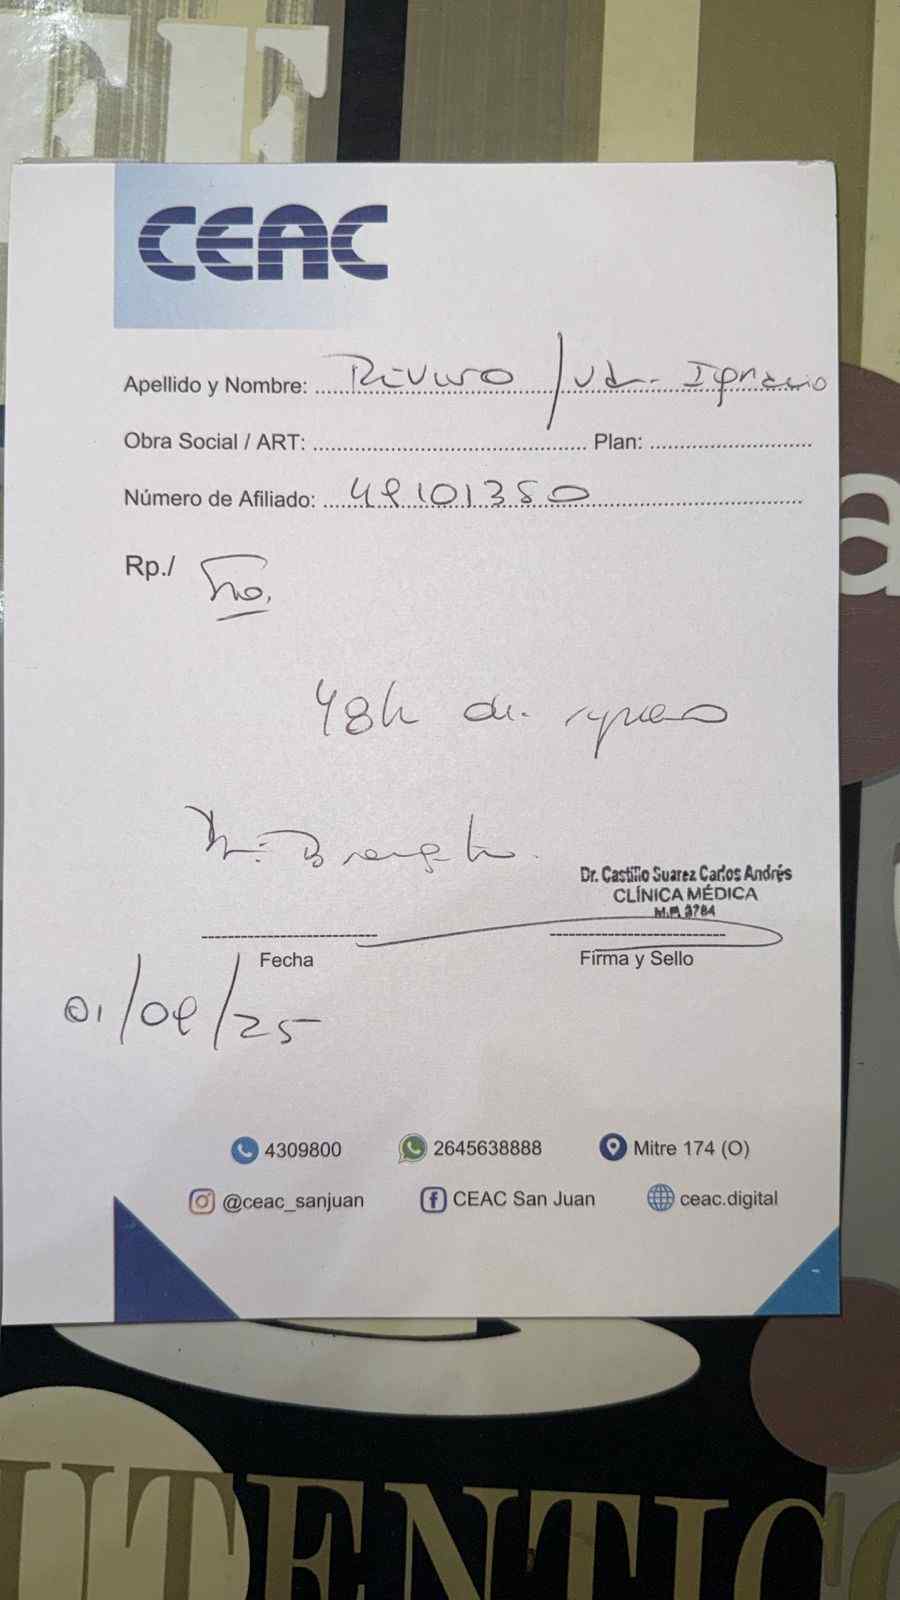 CEAC
Apellido y Nombre: Ignacio
Obra Social / ART: Plan:
Número de Afiliado: 49101350
Rp./ Tto.
48h de reposo
Dr. Castillo Suarez Carlos Andrés
CLÍNICA MÉDICA
M.P. 3784
Fecha
Firma y Sello
01/09/25
4309800
2645638888
Mitre 174 (O)
@ceac_sanjuan
CEAC San Juan
ceac.digital
UTENTIC